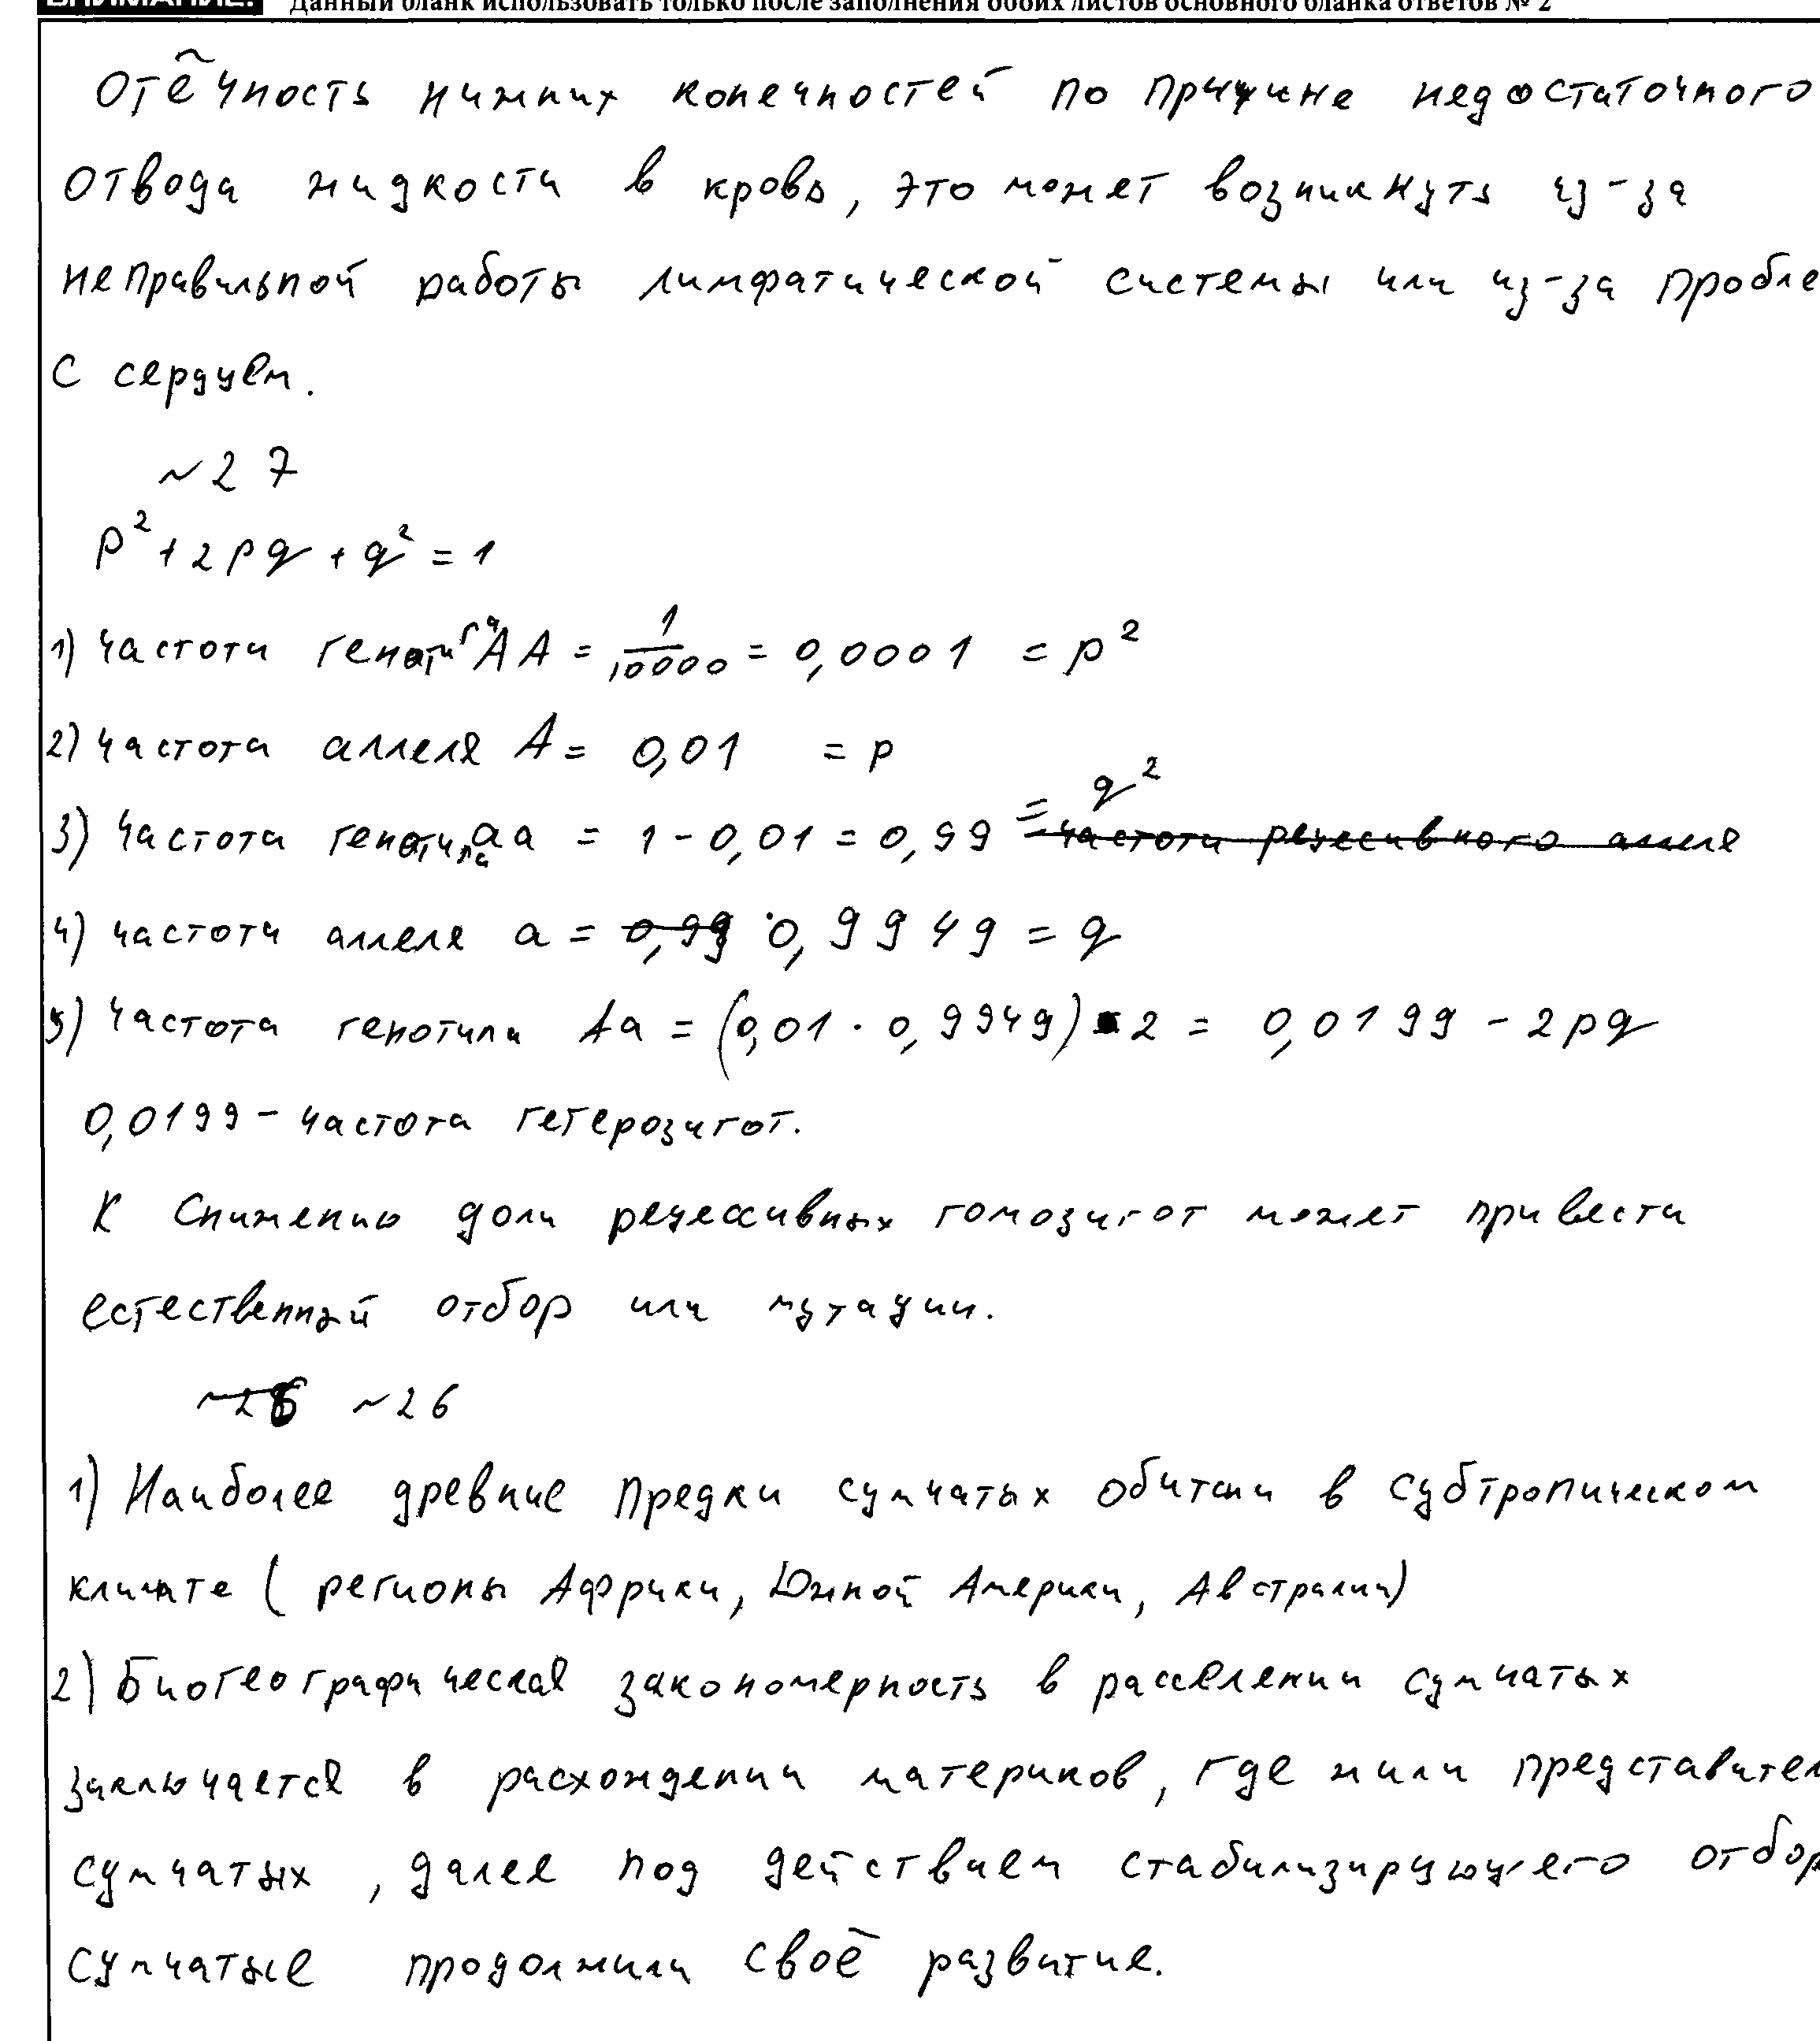 ВНИМАНИЕ! Данный бланк использовать только после заполнения обоих листов основного бланка ответов № 2
Отёчность нижних конечностей по причине недостаточного
отвода жидкости в кровь, это может возникнуть из-за
неправильной работы лимфатической системы или из-за пробле
с сердцем.
~27
p² + 2pq + q² = 1
1) Частота генотипа AA = 1/10000 = 0,0001 = p²
2) Частота аллеля A = 0,01 = p
3) Частота генотипа aa = 1 - 0,01 = 0,99 = q² частота рецесивного аллеля
4) частота аллеля a = 0,99 0,9949 = q
5) Частота генотипа Aa = (0,01 · 0,9949) 2 = 0,0199 - 2pq
0,0199 - частота гетерозигот.
К снижению доли рецессивных гомозигот может привести
естественный отбор или мутации.
~26 ~26
1) Наиболее древние предки сумчатых обитали в субтропическом
климате (регионы Африки, Южной Америки, Австралии)
2) Биогеографическая закономерность в расселении сумчатых
заключается в расхождении материков, где жили представител
сумчатых, далее под действием стабилизирующего отбор
сумчатые продолжили своё развитие.